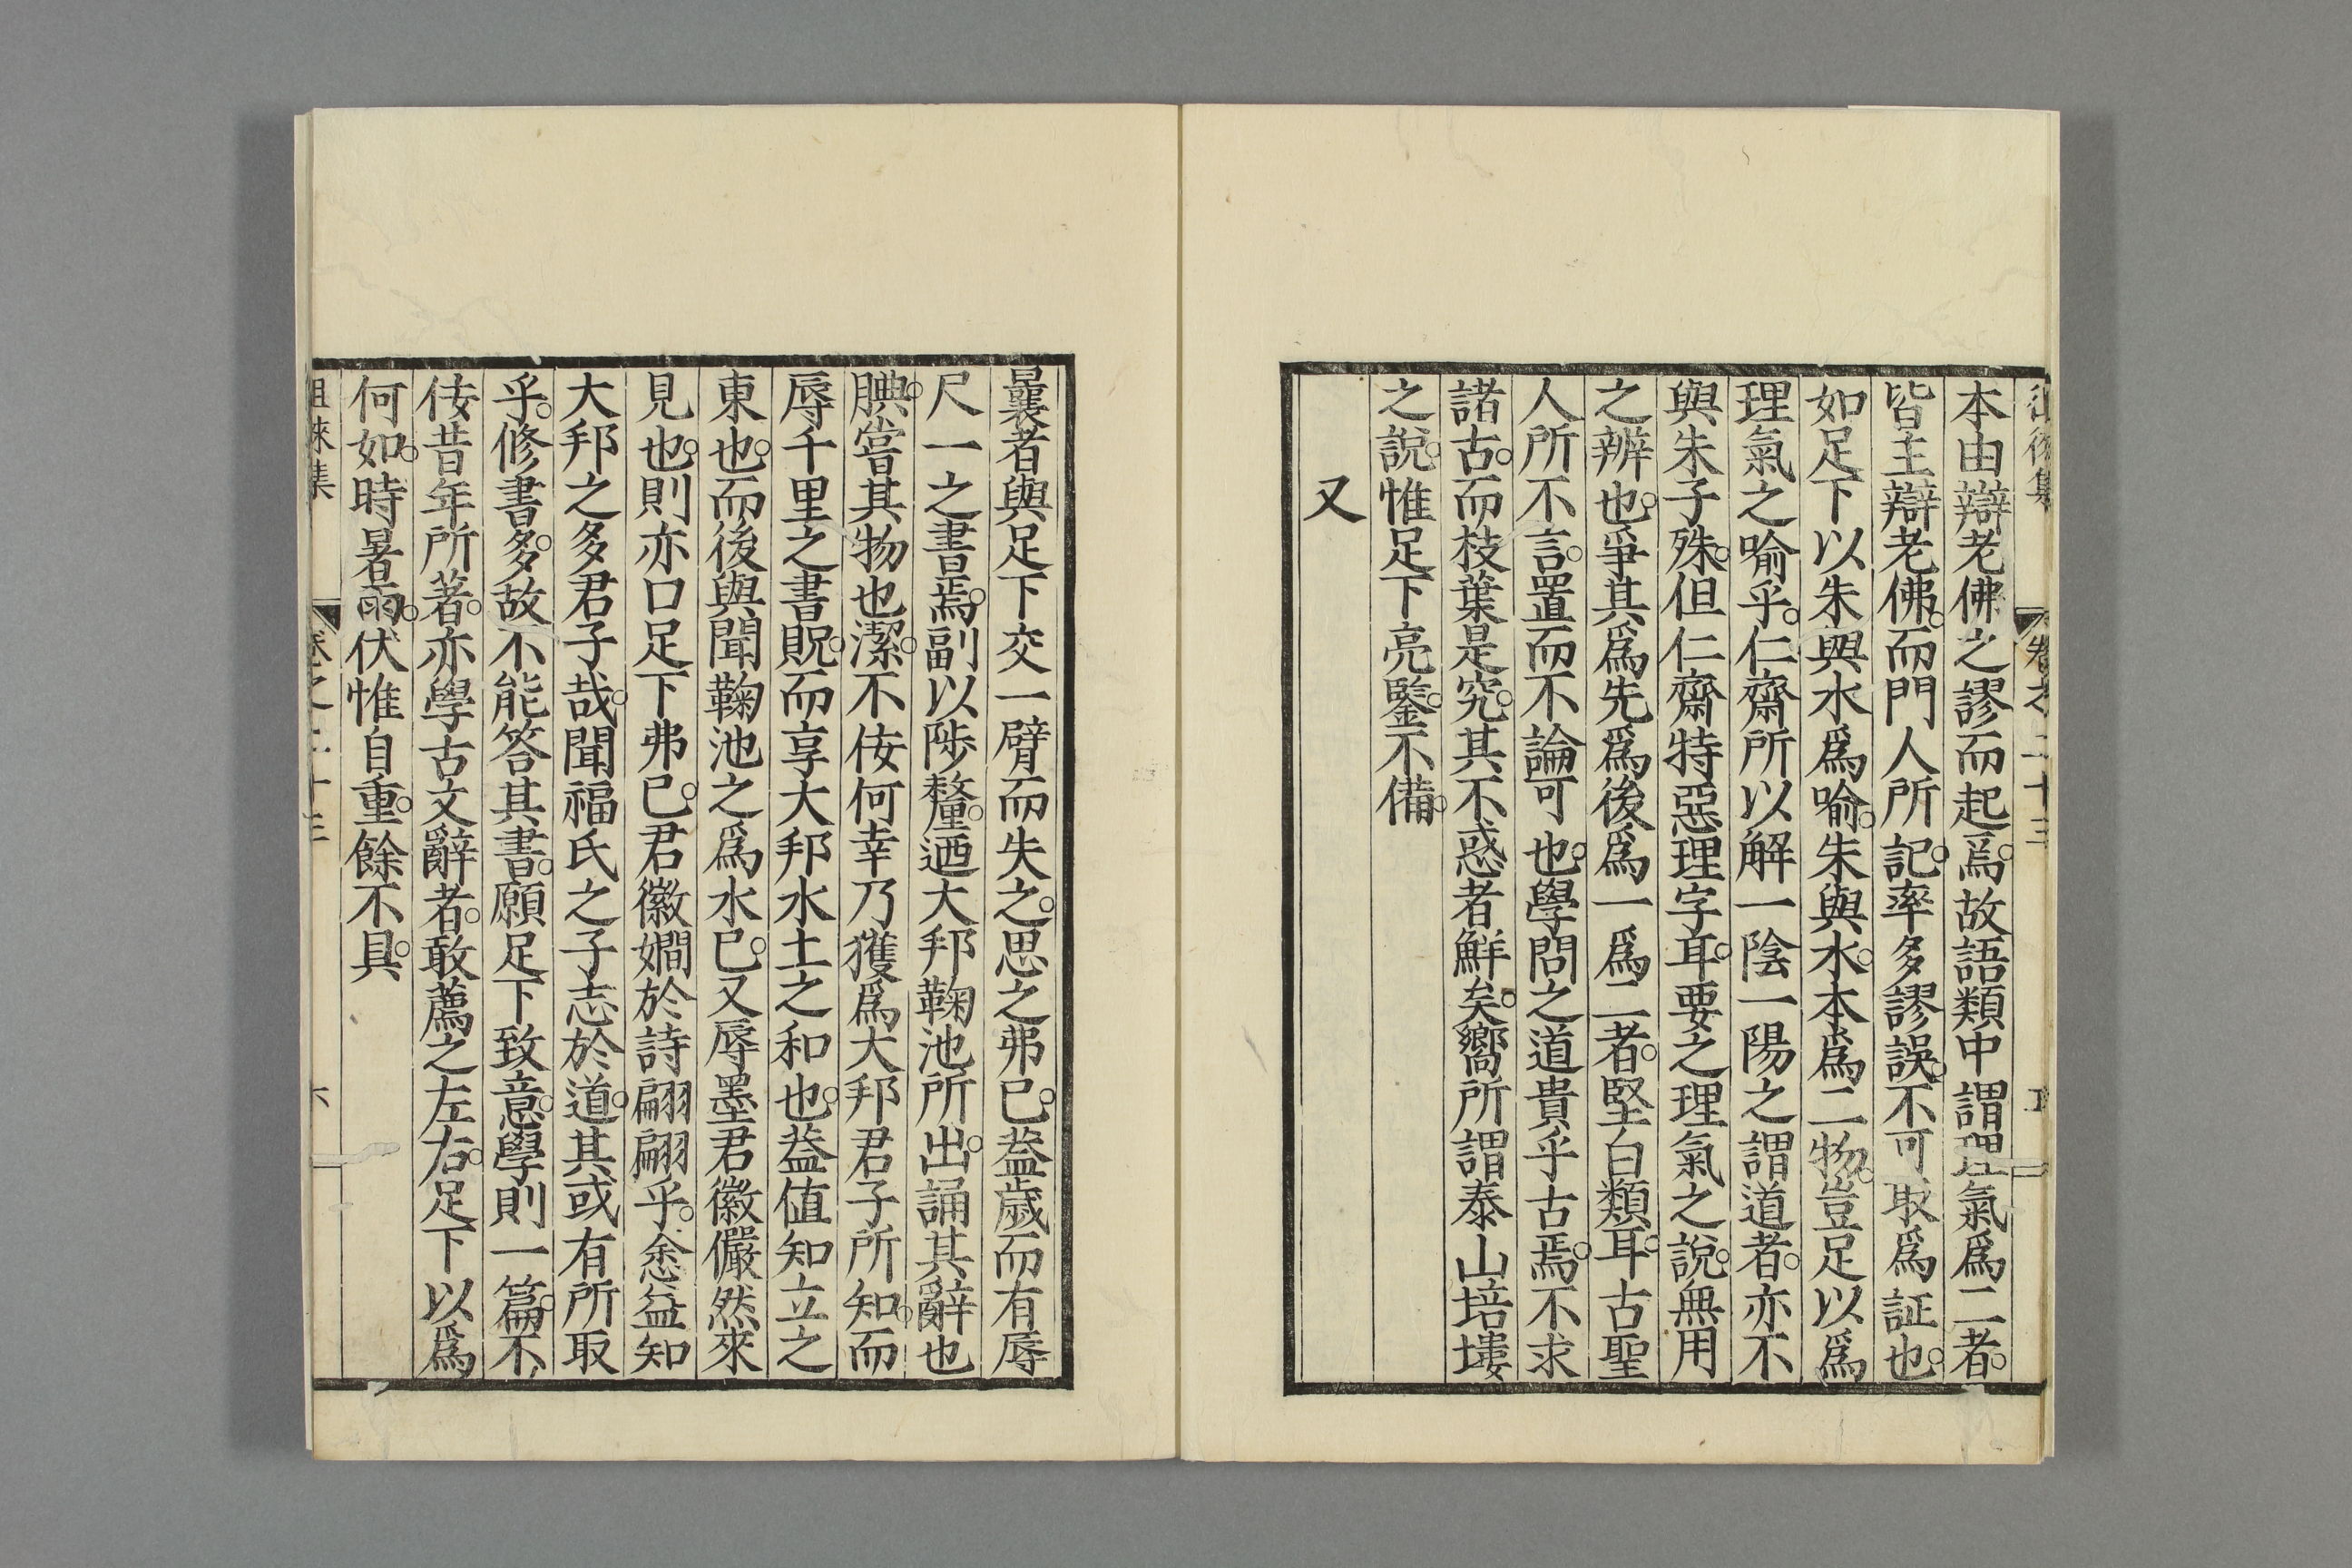 本由辯老佛之謬而起焉。故語類中謂理氣爲二者。
皆主辯老佛。而門人所記。率多謬誤。不可取爲証也。
如足下以朱與水爲喻。朱與水。本爲二物。豈足以爲
理氣之喻乎。仁齋所以解一陰一陽之謂道者。亦不
與朱子殊。但仁齋特惡理字耳。要之理氣之說。無用
之辨也。爭其爲先爲後爲一爲二者。堅白類耳。古聖
人所不言。置而不論可也。學問之道貴乎古焉。不求
諸古。而枝葉是究。其不惑者鮮矣。嚮所謂泰山培塿
之說。惟足下亮鑒。不備。
又
曩者與足下交一臂而失之。思之弗已。蓋歲而有辱
尺一之書焉。副以陟釐。迺大邦鞠池所出。誦其辭也
腆。嘗其物也潔。不佞何幸乃獲爲大邦君子所知。而
辱千里之書貺。而享大邦水土之和也。蓋值知立之
東也。而後與聞鞠池之爲水已。又辱墨君徽儼然來
見也。則亦口足下弗已。君徽嫺於詩翩翩乎。悆益知
大邦之多君子哉。聞福氏之子志於道。其或有所取
乎。修書多。故不能答其書。願足下致意。學則一篇。不
佞昔年所著。亦學古文辭者。敢薦之左右。足下以爲
何如。時暑雨。伏惟自重。餘不具。
徂徠集
卷之二十三
六